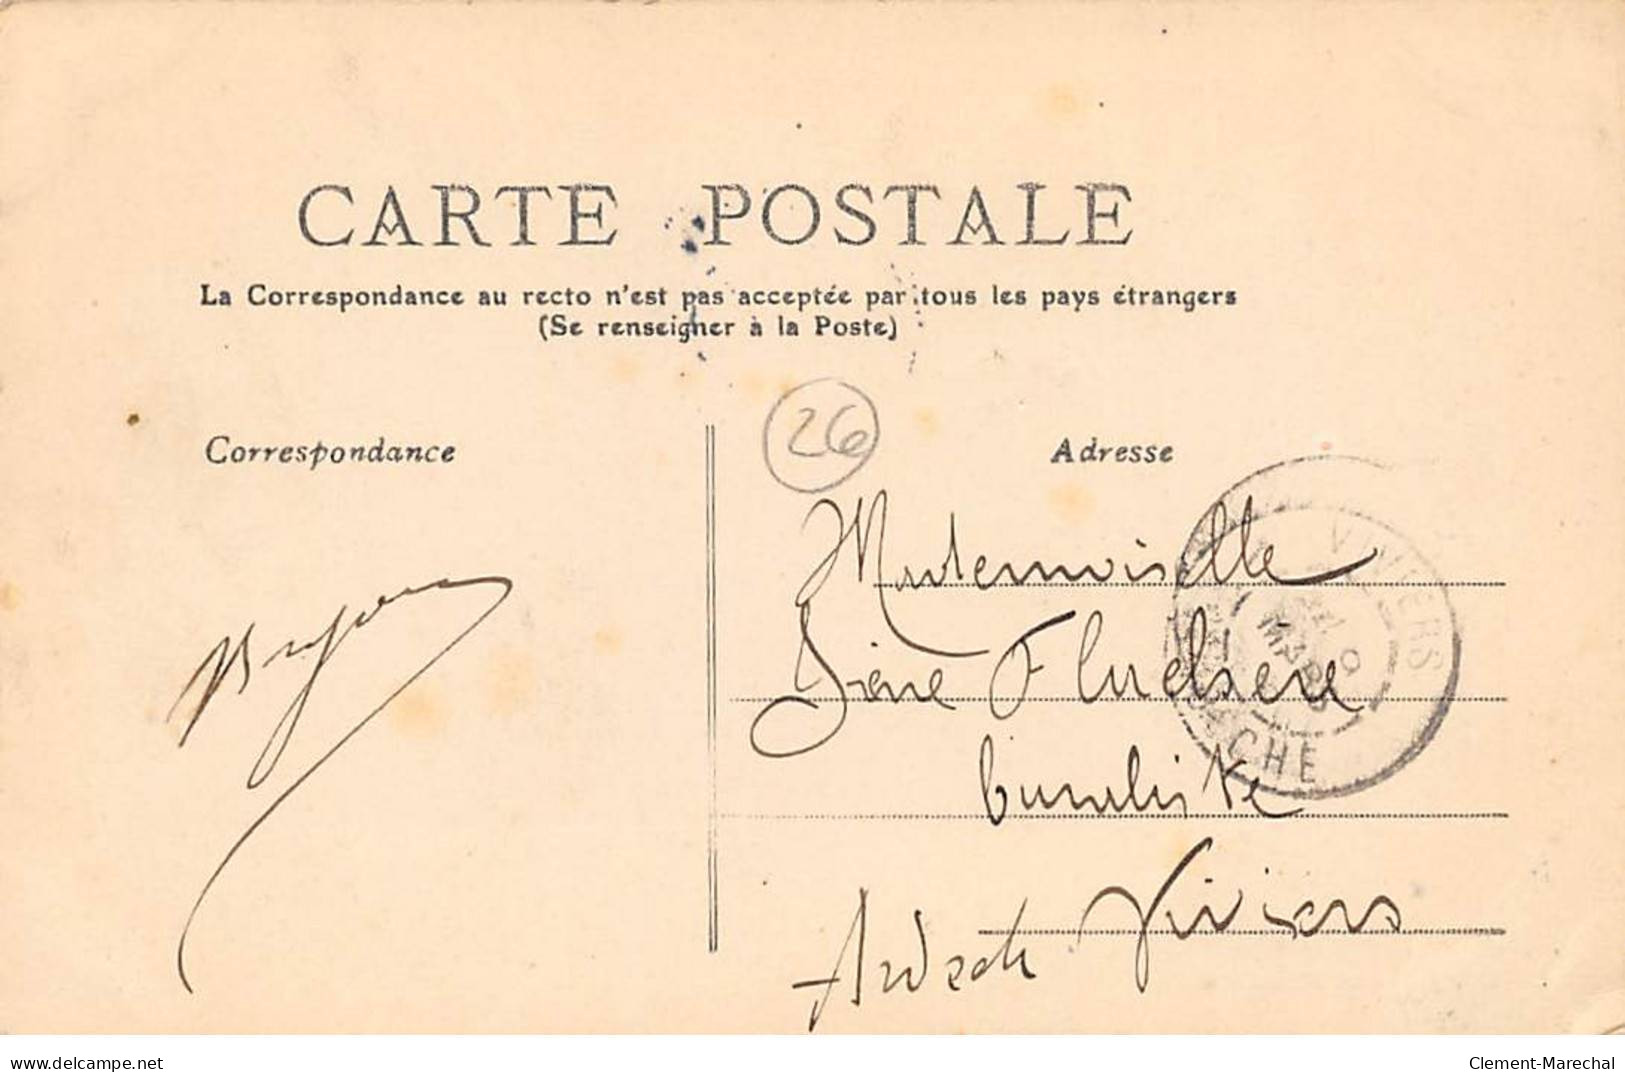 CARTE POSTALE
La Correspondance au recto n'est pas acceptée par tous les pays étrangers
(Se renseigner à la Poste)
26
Correspondance
Adresse
Mademoiselle
VIVIERS
MARS
CHE
Viviers
Ardèch
www.delcampe.net
Clement-Marechal